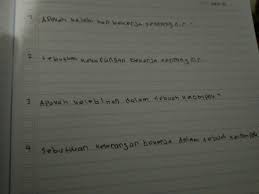 1 Apakah kelebihan bekerja seorang diri
2 Sebutkan kekurangan bekerja seorang diri
3 Apakah kelebihan dalam sebuah kelompok
4 Sebutkan kekurangan bekerja dalam sebuah kelompok